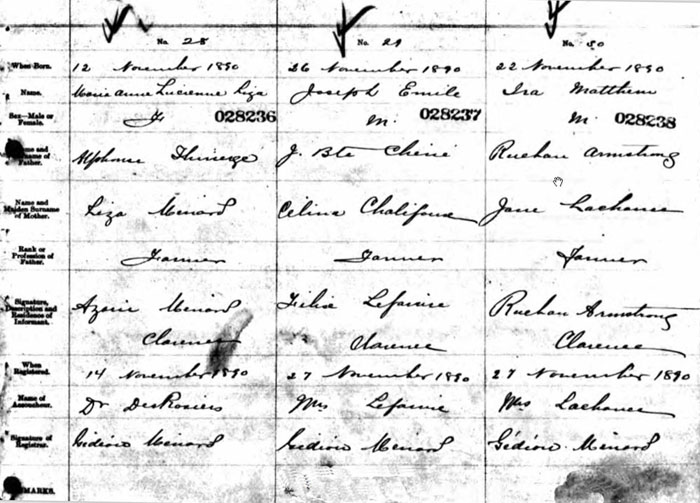 No. 28 No. 29 No. 30
When Born. 12 November 1890 26 November 1890 22 November 1890
Name. Marie Anne Lucienne Liza Joseph Emile Ira Matthew
Sex—Male or Female. F 028236 m. 028237 m. 028238
Name and Surname of Father. Alphonse J. Bte Armstrong
Name and Maiden Surname of Mother. Liza Menard Celina Jane Lachance
Rank or Profession of Father. Farmer Farmer Farmer
Signature, Description and Residence of Informant. Menard Armstrong
Clarence Clarence Clarence
When Registered. 14 November 1890 27 November 1890 27 November 1890
Name of Accoucheur. Dr DesRosiers Mrs Mrs Lachance
Signature of Registrar. Gédéon Menard Gédéon Menard Gédéon Menard
REMARKS.